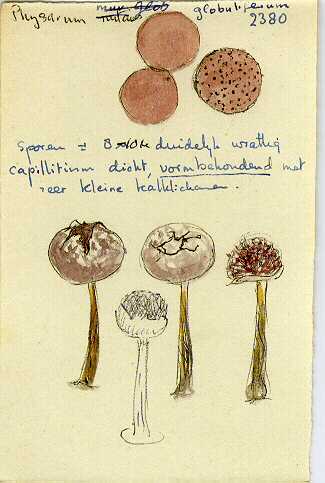 Physarum nutans globuliferum
2380
Sporen ± 8 10 µ duidelijk wrattig
capillitium dicht, vormbehoudend met
zeer kleine kalklichamen.